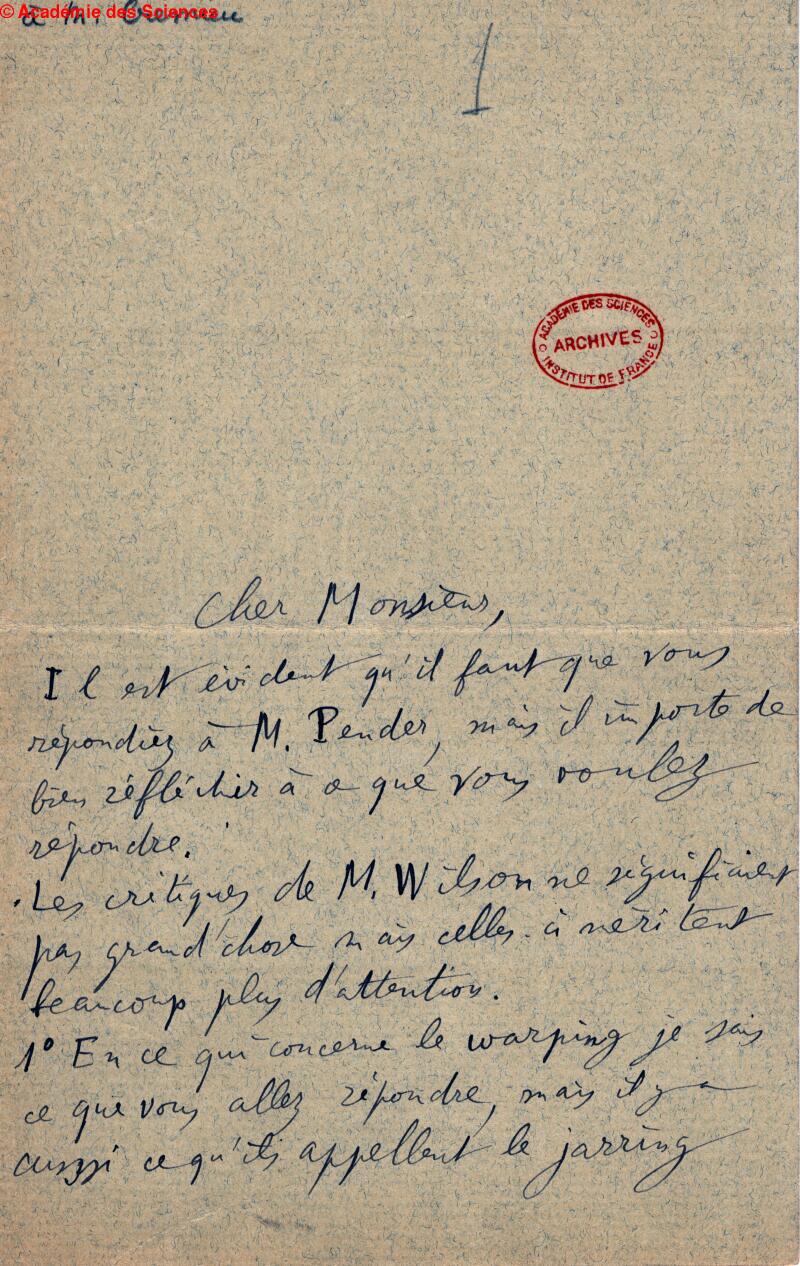 © Académie des Sciences
à M. Crémieu
1
ACADÉMIE DES SCIENCES
ARCHIVES
INSTITUT DE FRANCE
Cher Monsieur,
Il est évident qu'il faut que vous
répondiez à M. Pender, mais il importe de
bien réfléchir à ce que vous voulez
répondre.
Les critiques de M. Wilson ne signifiaient
pas grand'chose mais celles-ci méritent
beaucoup plus d'attention.
1° En ce qui concerne le warping je sais
ce que vous allez répondre, mais il y a
aussi ce qu'ils appellent le jarring